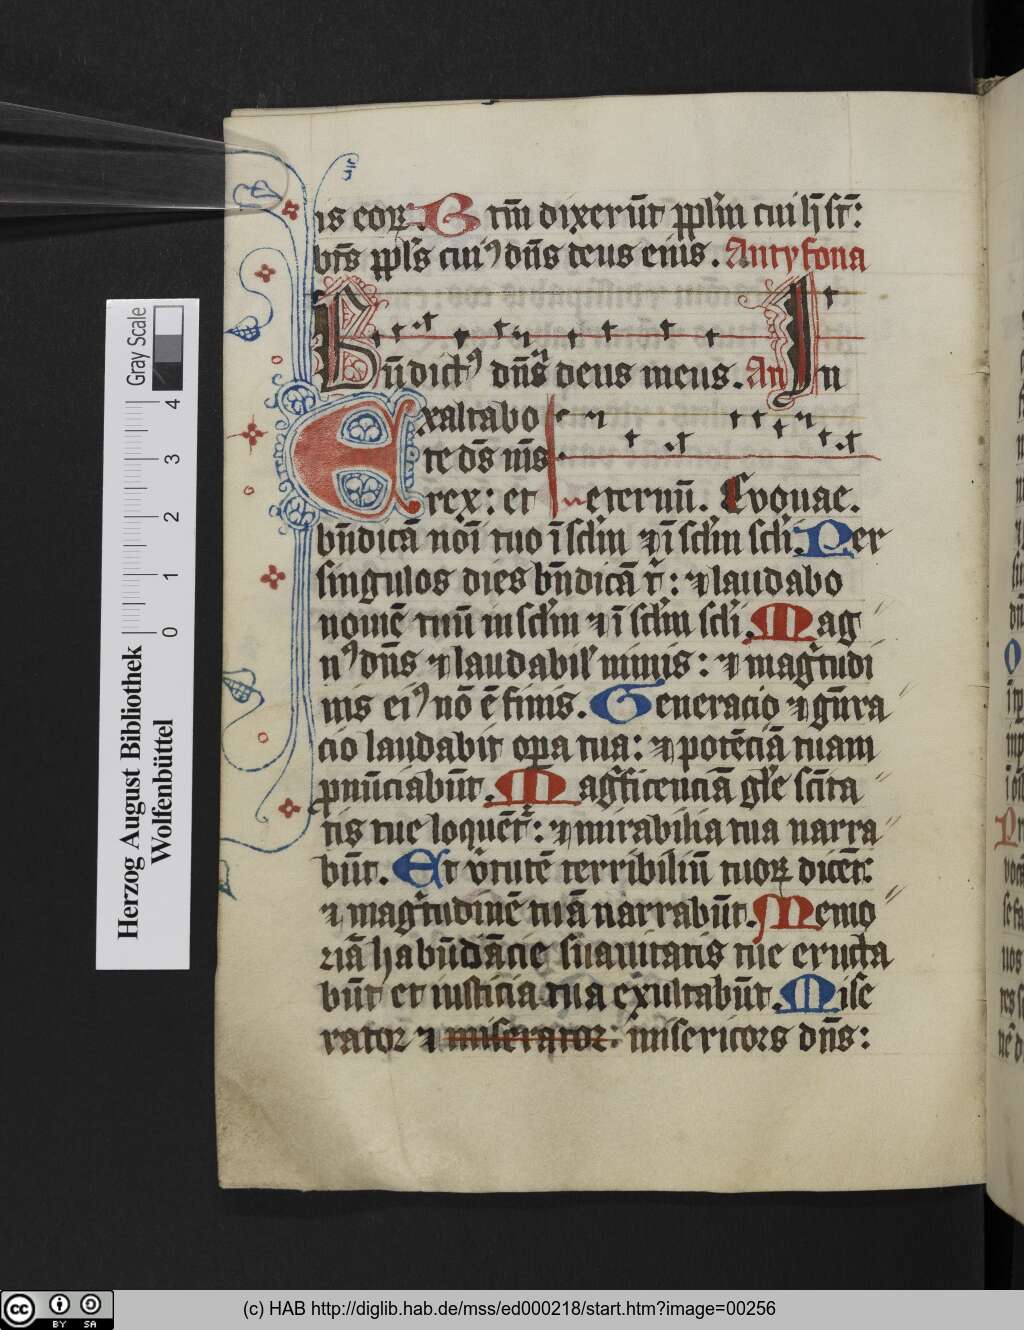 is eoꝝ. Btm̄ dixerūt ppl̄m cui h̄ st̄:
bt̄s ppl̄s cuiꝰ dn̄s deus eius. Antyfona
Bn̄dictꝰ dn̄s deus meus. An In
Exaltabo
te ds̄ ms̄
rex: et in eternū. Evovae.
bn̄dicā noī tuo ī sclm̄ ⁊ ī sclm̄ scl̄i. Per
singulos dies bn̄dicā t̄: ⁊ laudabo
nomē tuū in sclm̄ ⁊ ī sclm̄ scl̄i. Mag
nꝰ dn̄s ⁊ laudabil̄ nimis: ⁊ magͥtudi
nis eiꝰ nō ē finis. Generacio ⁊ gn̄ra
cio laudabit oꝑa tua: ⁊ potēciā tuam
ꝓnūciabūt. Magͥficenciā gl̄e scīta
tis tue loquēt̄: ⁊ mirabilia tua narra
būt. Et v̄tutē terribiliū tuoꝝ dicēt:
⁊ magͥtudinē tuā narrabūt. Memo
riā habūdācie suauitatis tue eructa
būt et iusticia tua exultabūt. Mise
rator ⁊ miserator: misericors dn̄s:
Herzog August Bibliothek
Wolfenbüttel
Gray Scale
0 1 2 3 4
cc BY SA
(c) HAB http://diglib.hab.de/mss/ed000218/start.htm?image=00256